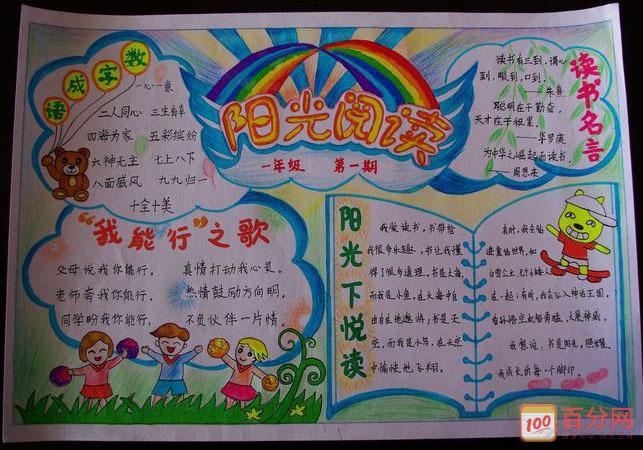 数字成语
一心一意
二人同心 三生有幸
四海为家 五彩缤纷
六神无主 七上八下
八面威风 九九归一
十全十美
阳光阅读
一年级 第一期
读书名言
读书有三到,谓心
到,眼到,口到。
——朱熹
聪明在于勤奋,
天才在于积累。
——华罗庚
为中华之崛起而读书。
——周恩来
“我能行”之歌
父母说我你能行, 真情打动我心灵。
老师夸我你能行, 热情鼓励方向明。
同学盼我你能行, 不负伙伴一片情。
阳光下悦读
我爱读书,书带给
我很多乐趣,书让我懂
得了很多道理。书是大海
而我是小鱼,在大海中自
由自在地遨游;书是天
空,而我是小鸟,在天空
中愉快地飞翔。
有时,我走进
童话世界,和
白雪公主
在一起;有时,我会进入神话王国,
看孙悟空
我想说:书是阳光,照耀
我成长的每一个脚印。
100 百分网